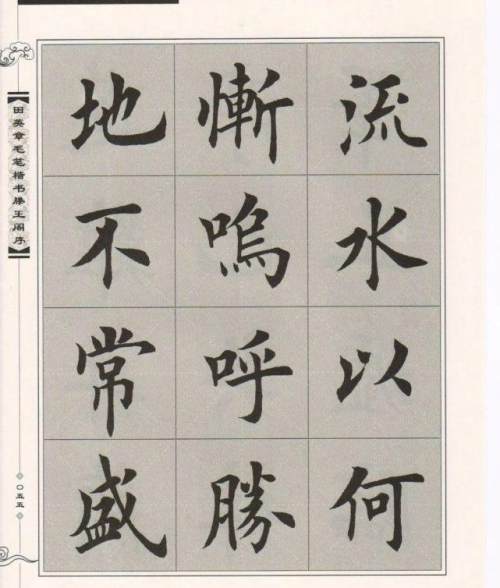 流水以何
慚嗚呼勝
地不常盛
【田英章毛笔楷书滕王阁序】
〇五五